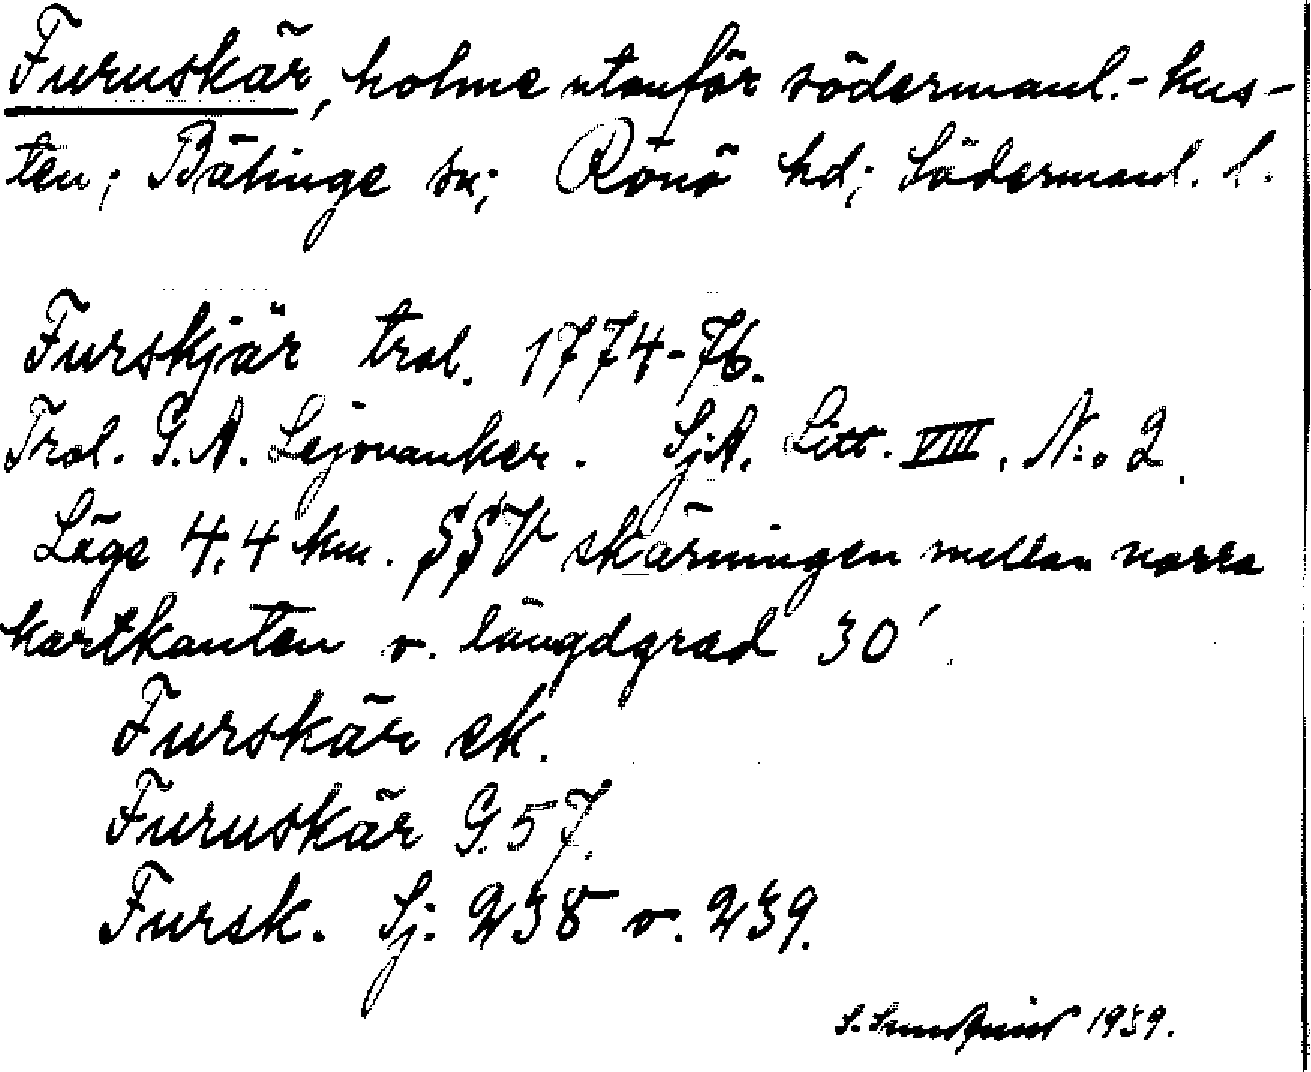 Furuskär, holme utanför södermanl.-kus-
ten; Bälinge sn; Rönö hd; Södermanl. l.
Furskjär trol. 1774-76.
Trol. G.A. Lejonanker. SjA. Litt. VIII, N:o 2.
Läge 4,4 km. SSV skärningen mellan norra
kartkanten o. längdgrad 30′.
Furskär ek.
Furuskär G.57.
Fursk. Sj. 238 o. 239.
S. Sundqvist 1939.